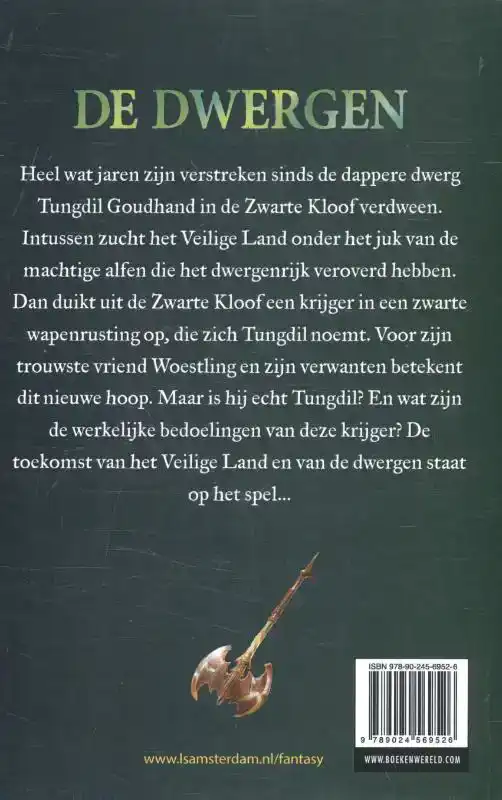 DE DWERGEN
Heel wat jaren zijn verstreken sinds de dappere dwerg
Tungdil Goudhand in de Zwarte Kloof verdween.
Intussen zucht het Veilige Land onder het juk van de
machtige alfen die het dwergenrijk veroverd hebben.
Dan duikt uit de Zwarte Kloof een krijger in een zwarte
wapenrusting op, die zich Tungdil noemt. Voor zijn
trouwste vriend Woestling en zijn verwanten betekent
dit nieuwe hoop. Maar is hij echt Tungdil? En wat zijn
de werkelijke bedoelingen van deze krijger? De
toekomst van het Veilige Land en van de dwergen staat
op het spel...
ISBN 978-90-245-6952-6
9 789024 569526
www.lsamsterdam.nl/fantasy
WWW.BOEKENWERELD.COM